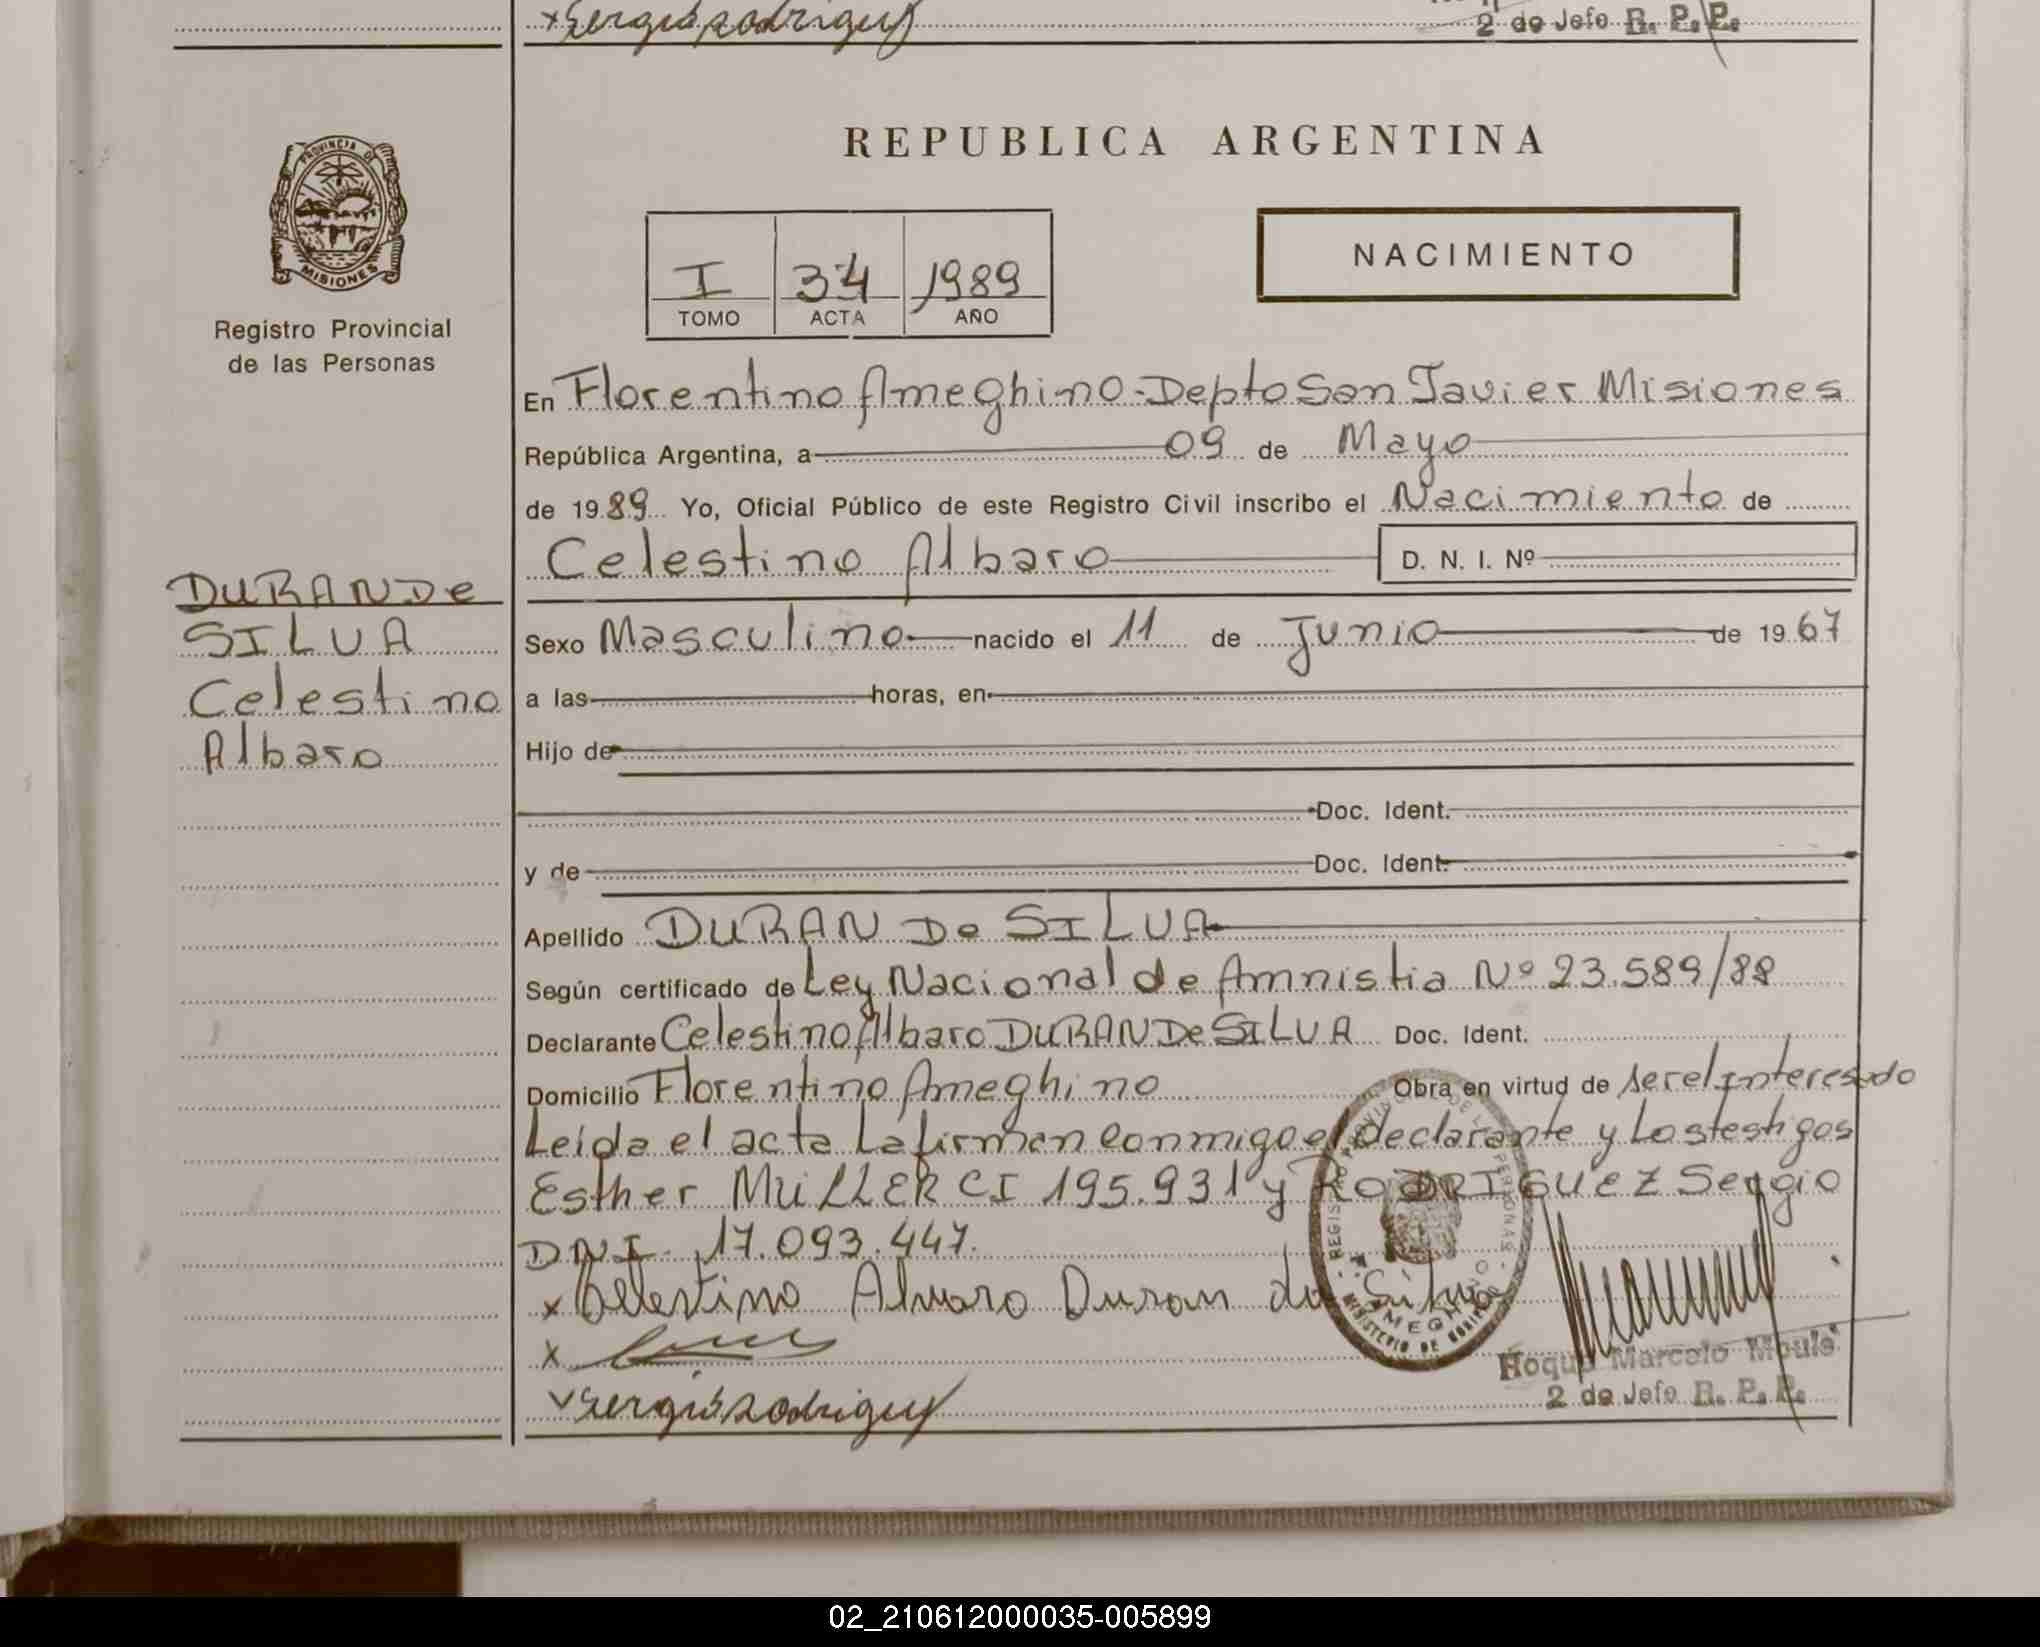 x Sergio Rodriguez
2 do Jefe R. P. P.
PROVINCIA DE
MISIONES
Registro Provincial
de las Personas
REPUBLICA ARGENTINA
NACIMIENTO
I 34 1989
TOMO ACTA AÑO
En Florentino Ameghino-Depto San Javier Misiones
República Argentina, a 09 de Mayo
de 1989 Yo, Oficial Público de este Registro Civil inscribo el Nacimiento de
Celestino Albaro D. N. I. Nº
DURAN De
SILUA
Celestino
Albaro
Sexo Masculino nacido el 11 de Junio de 1967
a las horas, en
Hijo de
Doc. Ident.
y de Doc. Ident.
Apellido DURAN De SILUA
Según certificado de Ley Nacional de Amnistia Nº 23.589/88
Declarante Celestino Albaro DURAN De SILUA Doc. Ident.
Domicilio Florentino Ameghino Obra en virtud de ser el Interesado
Leida el acta La firman conmigo el declarante y Los testigos
Esther MüLLER CI 195.931 y RODRIGUEZ Sergio
DNI 17.093.447.
x Celestino Alvaro Duran da Silva
x
Sergio Rodriguez
Roque Marcelo
2 do Jefe R. P. P.
02_210612000035-005899